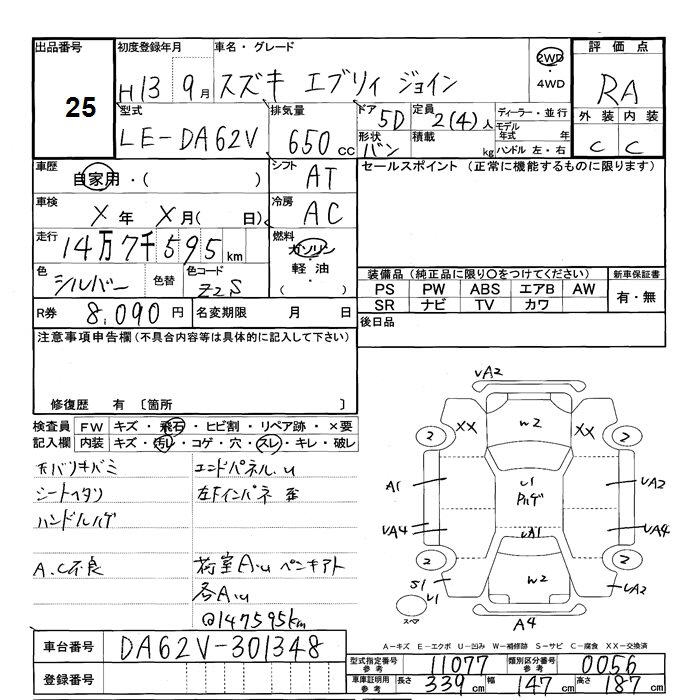 出品番号 初度登録年月 車名・グレード 評価点
25
H13年 9月 スズキ エブリィ ジョイン 2WD・4WD RA
型式 排気量 ドア 定員 ディーラー・並行 外装 内装
LE-DA62V 650cc 5D 2(4)人 モデル年式 年 C C
形状 バン 積載 kg ハンドル 左・右
車歴 自家用・( ) シフト AT セールスポイント (正常に機能するものに限ります)
車検 X年 X月( 日) 冷房 AC
走行 14万7千595km 燃料 ガソリン・軽油・( )
色 シルバー 色替 色コード Z2S
装備品(純正品に限り○をつけてください) 新車保証書
PS PW ABS エアB AW 有・無
SR ナビ TV カワ
R券 8,090円 名変期限 月 日 後日品
注意事項申告欄(不具合内容等は具体的に記入して下さい)
修復歴 有 〔箇所 〕
検査員記入欄 FW キズ・飛石・ヒビ割・リペア跡・×要
内装 キズ・汚れ・コゲ・穴・スレ・キレ・破レ
エンドパネル.u
シートヘタリ 左Fインパネ
ハンドルハゲ
A.C不良 荷室A.u ペンキアト
各A.u
@147595km
UA2
XX W2 XX
2 2
A1 U1 UA2
Pハゲ
UA4 UA1 UA4
2 2
S1 U1 W2 UA2
スペア A4
A-キズ E-エクボ U-凹み W-補修跡 S-サビ C-腐食 XX-交換済
車台番号 DA62V-301348
型式指定番号 参考 11077 類別区分番号 参考 0056
登録番号
車庫証明用 参考 長さ 339cm 幅 147cm 高さ 187cm